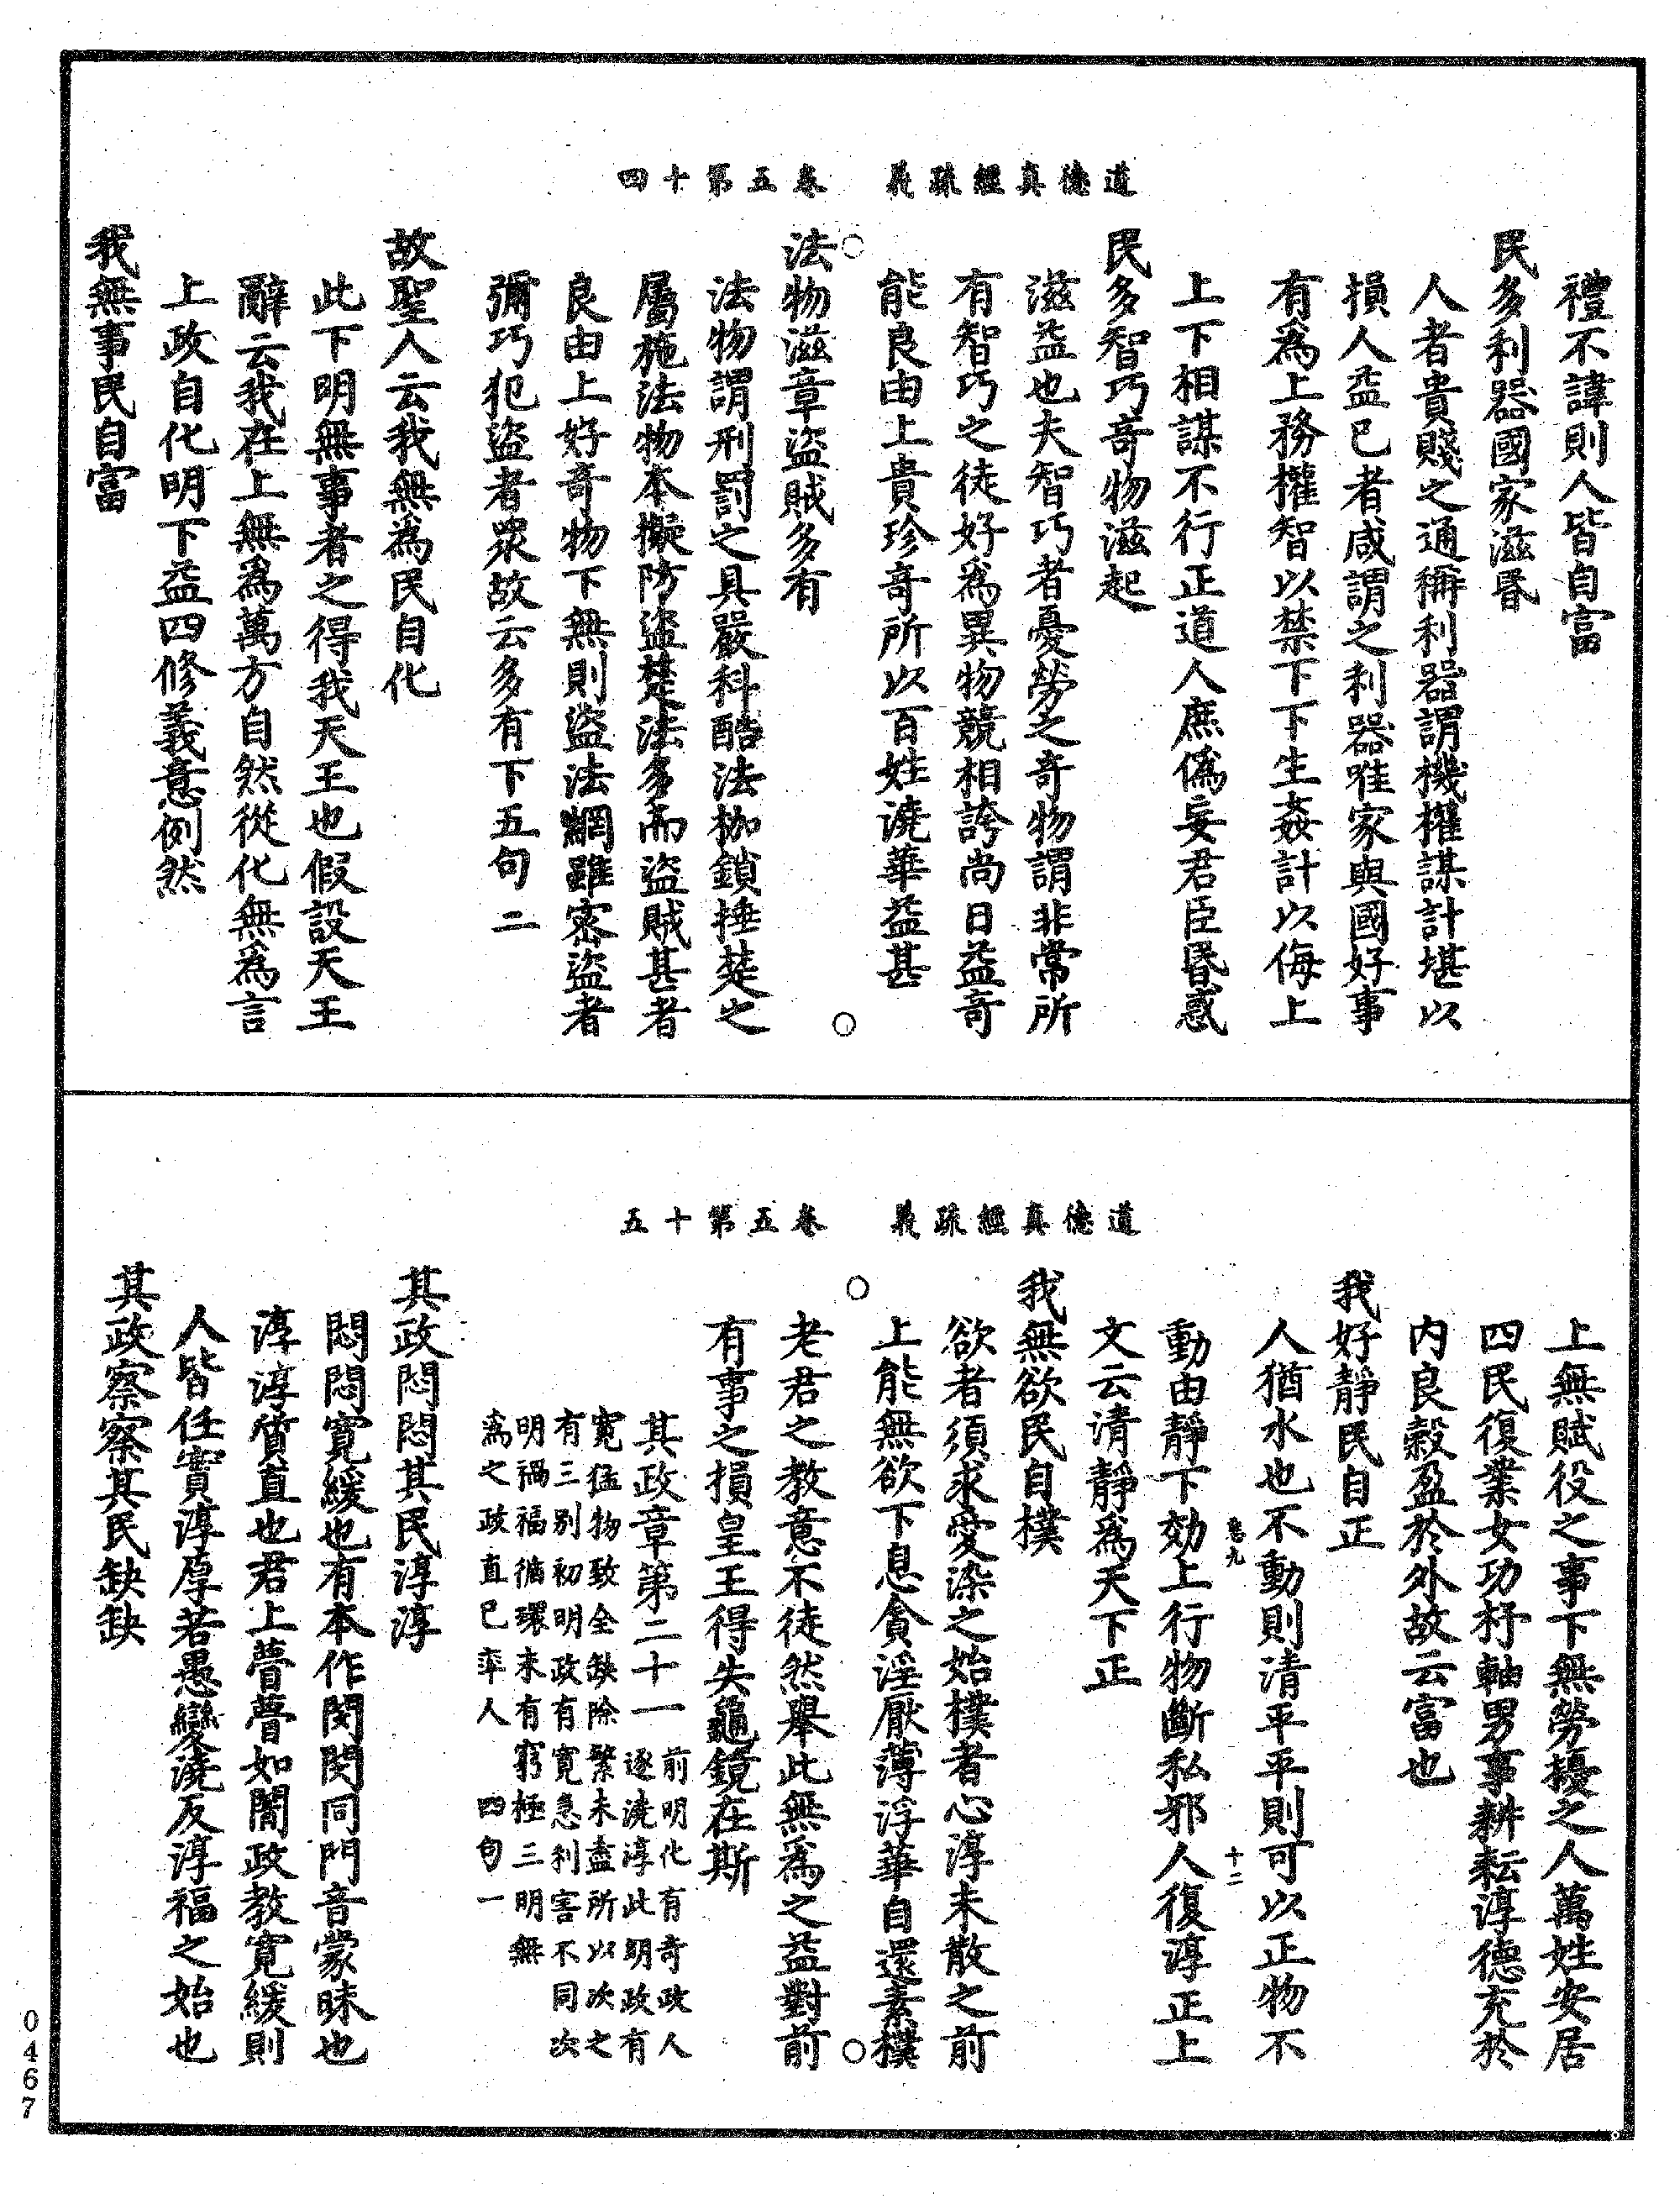 道德真經疏義　卷五第十四
禮不諱則人皆自富
民多利器國家滋昬
人者貴賤之通稱利器謂機權謀計堪以
損人益已者咸謂之利器唯家與國好事
有爲上務權智以禁下下生姦計以侮上
上下相謀不行正道人庶僞妄君臣昬惑
民多智巧奇物滋起
滋益也夫智巧者憂勞之奇物謂非常所
有智巧之徒好爲異物競相誇尚日益奇
能良由上貴珍奇所以百姓澆華益甚
法物滋章盜賊多有
法物謂刑罰之具嚴科酷法枷鎖捶楚之
屬施法物本擬防盜楚法多而盜賊甚者
良由上好奇物下無則盜法網雖密盜者
彌巧犯盜者眾故云多有下五句二
故聖人云我無爲民自化
此下明無事者之得我天王也假設天王
辭云我在上無爲萬方自然從化無爲言
上政自化明下益四修義意例然
我無事民自富
道德真經疏義　卷五第十五
上無賦役之事下無勞擾之人萬姓安居
四民復業女功杼軸男事耕耘淳德充於
内良穀盈於外故云富也
我好靜民自正
人猶水也不動則清平平則可以正物不
卷九　十二
動由靜下効上行物斷私邪人復淳正上
文云清靜爲天下正
我無欲民自樸
欲者須求愛染之始樸者心淳未散之前
上能無欲下息貪淫厭薄浮華自還素樸
老君之教意不徒然舉此無爲之益對前
有事之損皇王得失龜鏡在斯
其政章第二十一　前明化有奇政人
逐澆淳此明政有
寬猛物致全缺除繁未盡所以次之
有三別初明政有寬急利害不同次
明禍福循環末有窮極三明無
爲之政直已率人　四句一
其政悶悶其民淳淳
悶悶寬緩也有本作閔閔同門音蒙昧也
淳淳質直也君上瞢瞢如闇政教寬緩則
人皆任實淳厚若愚變澆反淳福之始也
其政察察其民缺缺
0467